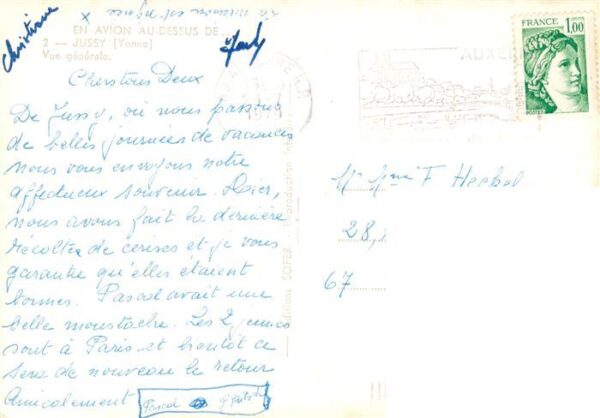 Christiane
La maison est
EN AVION AU-DESSUS DE...
2 — JUSSY (Yonne)
Vue générale.
Chers tous Deux
De Jussy, où nous passons
de belles journées de vacances
nous vous envoyons notre
affectueux souvenir. Hier,
nous avons fait la dernière
récolte de cerises et je vous
garantie qu'elles étaient
bonnes. Pascal avait une
belle moustache. Les 2 jeunes
sont à Paris et bientôt ce
sera de nouveau le retour
Amicalement
Pascal
Editions SOFER
FRANCE
1,00
POSTES
Mr Mme F Heckel
28,
67